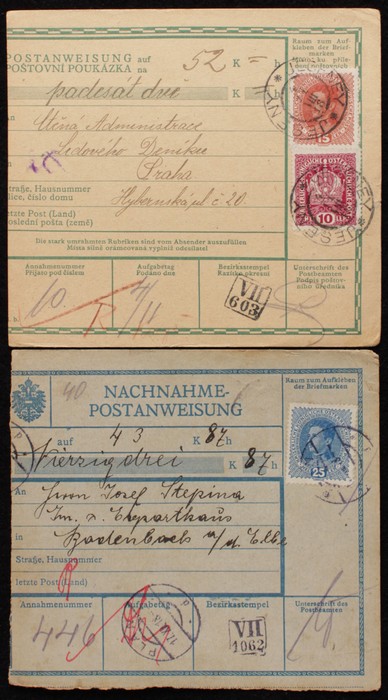 POSTANWEISUNG auf 52 K = h
POŠTOVNÍ POUKÁZKA na
Raum zum Auf-
kleben der Brief-
marken
padesát dvě K h
15
Ctěná Administrace
Lidového Deníku
Praha
Straße, Hausnummer
ulice, číslo domu
Hybernská ul č 20.
Letzte Post (Land)
Poslední pošta (země)
10
Die stark umrahmten Rubriken sind vom Absender auszufüllen
Místa silně orámovaná vyplní odesílatel
Annahmenummer
Přijato pod číslem
Aufgabetag
Podáno dne
Bezirksstempel
Razítko okresní
Unterschrift des
Postbeamten
Podpis poštov-
ního úředníka
VII
603
40
NACHNAHME-
POSTANWEISUNG
Raum zum Aufkleben
der Briefmarken
auf 43 K 87 h
Vierzigdrei K 87 h
25
An Herrn Josef Stepina
in Bodenbach a/d. Elbe
Straße, Hausnummer
letzte Post (Land)
Annahmenummer
Aufgabetag
Bezirksstempel
Unterschrift des
Postbeamten
446
VII
1062